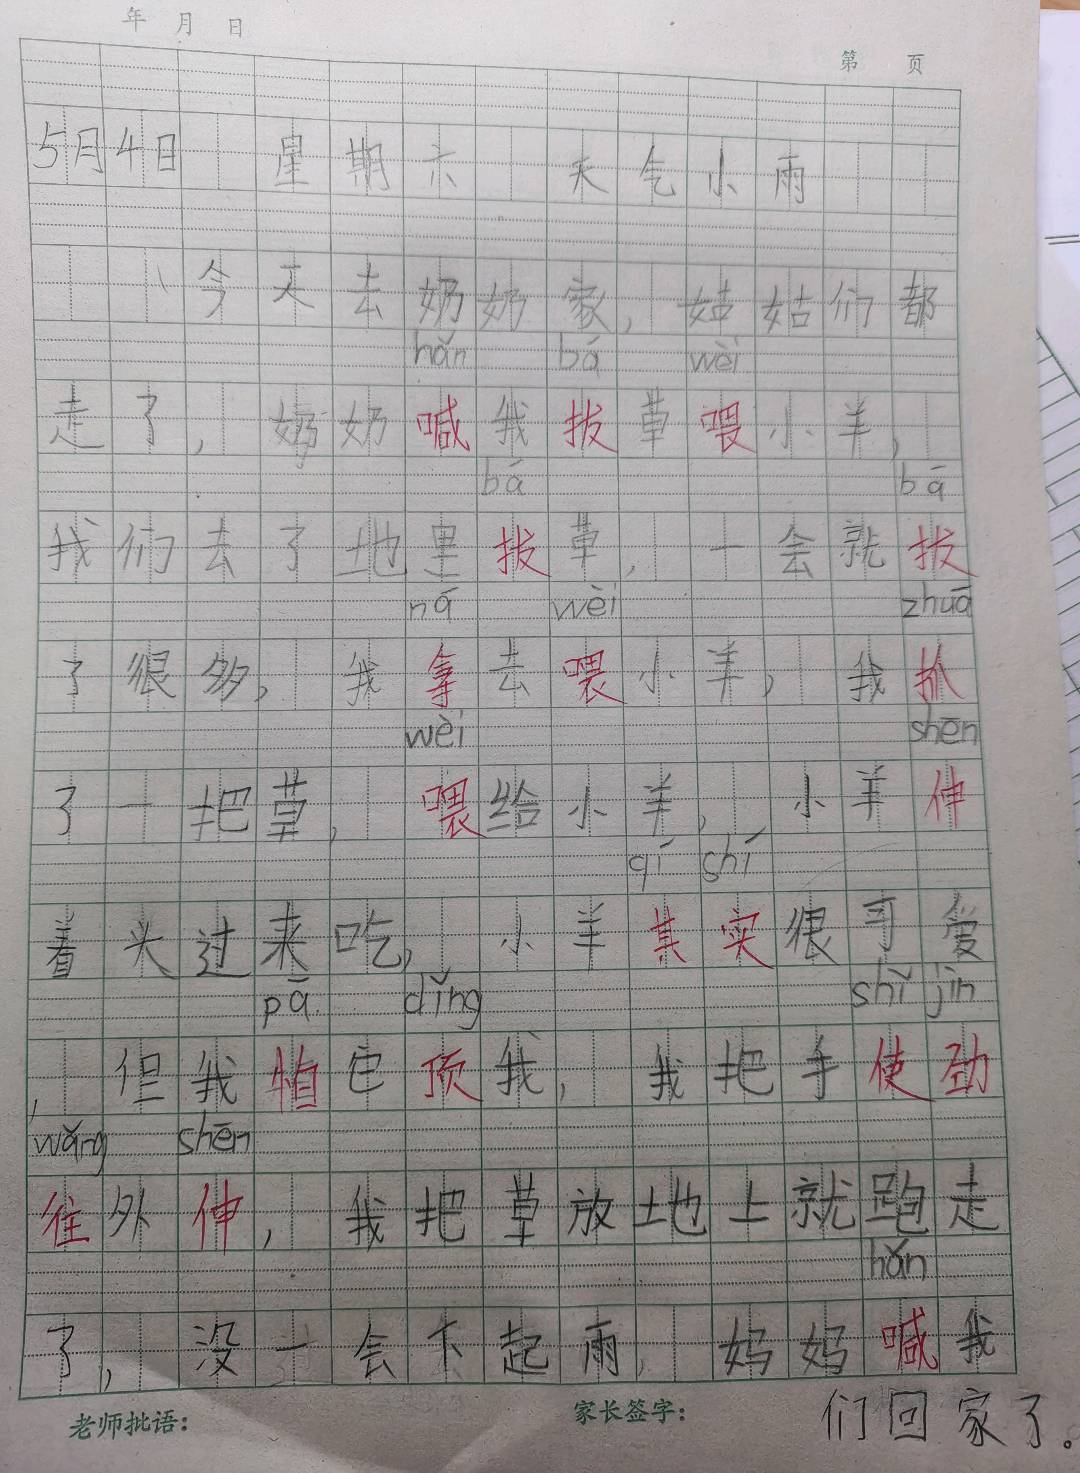 年 月 日
第 页
5月4日 星期六 天气小雨
今天去奶奶家，姑姑们都
hǎn bá wèi
走了，奶奶喊我拔草喂小羊，
bá bá
我们去了地里拔草，一会就拔
ná wèi zhuā
了很多，我拿去喂小羊，我抓
wèi shēn
了一把草，喂给小羊，小羊伸
qí shí
着头过来吃，小羊其实很可爱
pà dǐng shǐ jìn
，但我怕它顶我，我把手使劲
wǎng shēn
往外伸，我把草放地上就跑走
hǎn
了，没一会下起雨，妈妈喊我
老师批语： 家长签字： 们回家了。